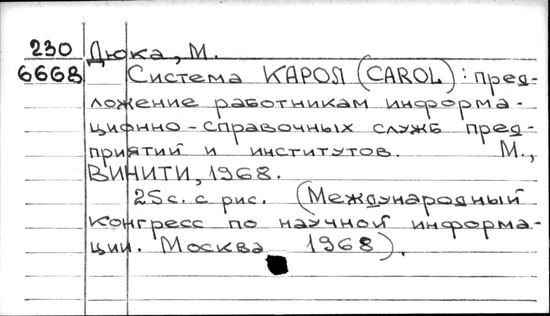 230 Дюка, М.
6668 Система КАРОЛ (CAROL): пред-
ложение работникам информа-
ционно-справочных служб пред-
приятий и институтов. М.,
ВИНИТИ, 1968.
25с. с рис. (Международный
конгресс по научной информа-
ции. Москва 1968).